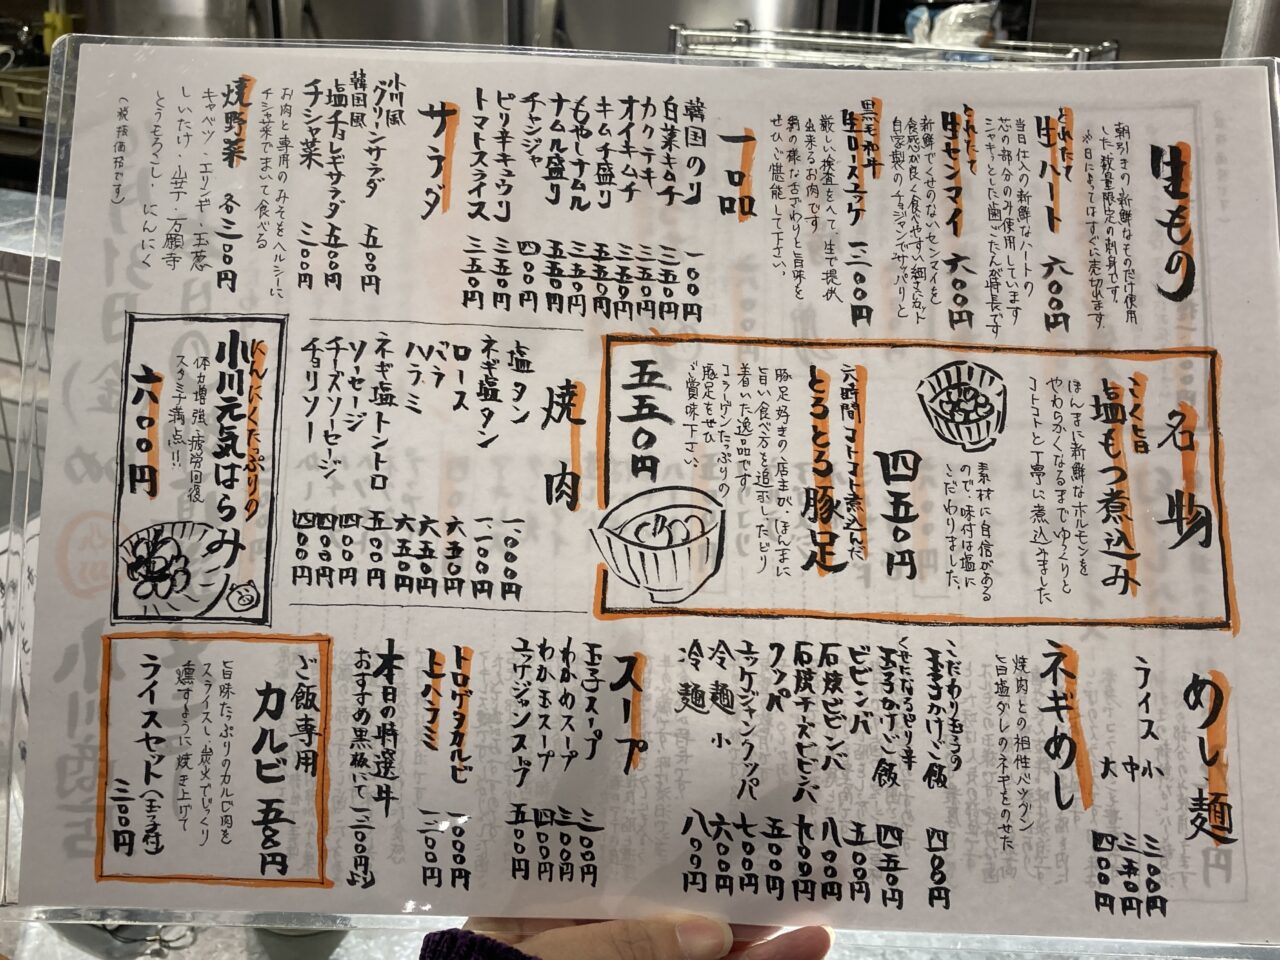 生もの
朝引きの新鮮なものだけ使用
した数量限定の刺身です。
※日によってはすぐに売切れます。
とれたて
生ハート 六〇〇円
当日仕入の新鮮なハートの
芯の部分のみ使用しています
シャキッとした歯ごたえが特長です
とれたて
生センマイ 六〇〇円
新鮮でくせのないセンマイを
食感が良く食べやすい細さにカット
自家製のチョジャンでサッパリと
黒毛和牛
生ロースユッケ 一二〇〇円
厳しい検査をへて生で提供
出来るお肉です
絹の様な舌ざわりと旨味を
ぜひご堪能して下さい。
一品
韓国のり 一〇〇円
白菜キムチ 三五〇円
カクテキ 三五〇円
オイキムチ 三五〇円
キムチ盛り 五五〇円
もやしナムル 三五〇円
ナムル盛り 五五〇円
チャンジャ 四〇〇円
ピリ辛キュウリ 三五〇円
トマトスライス 三五〇円
サラダ
小川風
グリーンサラダ 五〇〇円
韓国風
塩チョレギサラダ 五〇〇円
チシャ菜 三〇〇円
お肉と専用のみそをヘルシーに
チシャ菜でまいて食べる
焼野菜 各三〇〇円
キャベツ エリンギ・玉葱
しいたけ・山芋・万願寺
とうもろこし・にんにく
(税抜価格です)
名物
こく旨
塩もつ煮込み
ほんまに新鮮なホルモンを
やわらかくなるまでゆっくりと
コトコトと丁寧に煮込みました
素材に自信がある
ので、味付は塩に
こだわりました。
四五〇円
六時間コトコト煮込んだ
とろとろ豚足
豚足好きの店主が、ほんまに
旨い食べ方を追求したどり
着いた逸品です
コラーゲンたっぷりの
豚足をぜひ
ご賞味下さい。
五五〇円
焼肉
塩タン 一〇〇〇円
ネギ塩タン 一一〇〇円
ロース 六五〇円
バラ 六五〇円
ハラミ 六五〇円
ネギ塩トントロ 五〇〇円
ソーセージ 四〇〇円
チーズソーセージ 四〇〇円
チョリソー 四〇〇円
にんにくたっぷりの
小川元気はらみ
体力増強、疲労回復
スタミナ満点!!
六〇〇円
めし 麺
ライス 小 三〇〇円
中 三五〇円
大 四〇〇円
ネギめし
焼肉との相性バツグン
旨塩ダレのネギをのせた
こだわり玉子の
玉子かけご飯 四〇〇円
くせになるピリ辛
玉子かけご飯 四五〇円
ビビンバ 五〇〇円
石焼ビビンバ 八〇〇円
石焼チーズビビンバ 九〇〇円
クッパ 五〇〇円
ユッケジャンクッパ 七〇〇円
冷麺 小 六〇〇円
冷麺 八〇〇円
スープ
玉子スープ 三〇〇円
わかめスープ 三〇〇円
わか玉スープ 四〇〇円
ユッケジャンスープ 五〇〇円
トロゲタカルビ 一〇〇〇円
上ハラミ 一二〇〇円
本日の特選牛
おすすめ黒板にて 一三〇〇円より
ご飯専用
カルビ 五八〇円
旨味たっぷりのカルビ肉を
スライスし、炭火でじっくり
燻すように焼き上げて
ライスセット(玉子付) 三〇〇円